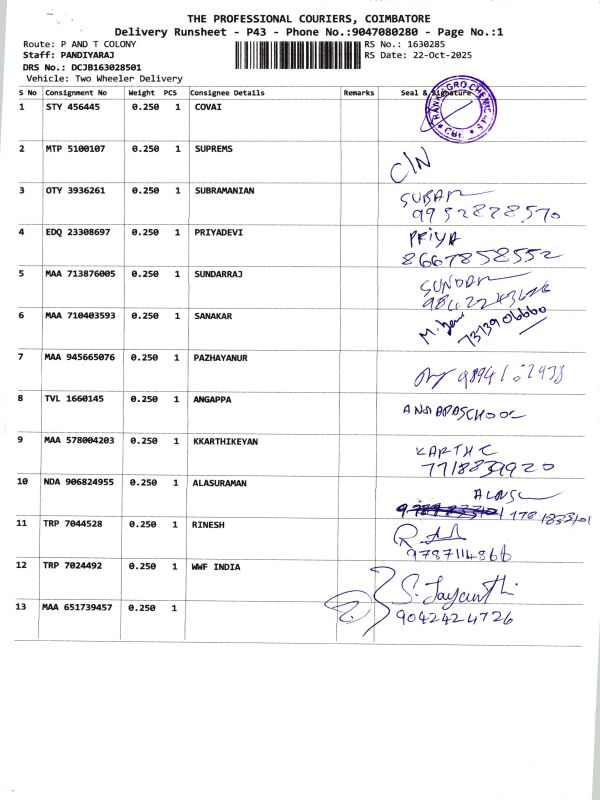 THE PROFESSIONAL COURIERS, COIMBATORE
Delivery Runsheet - P43 - Phone No.:9047080280 - Page No.:1
Route: P AND T COLONY
RS No.: 1630285
Staff: PANDIYARAJ
RS Date: 22-Oct-2025
DRS No.: DCJB163028501
Vehicle: Two Wheeler Delivery
S No Consignment No Weight PCS Consignee Details Remarks Seal & Signature
1 STY 456445 0.250 1 COVAI
2 MTP 5100107 0.250 1 SUPREMS
C/N
3 OTY 3936261 0.250 1 SUBRAMANIAN
9952828570
4 EDQ 23308697 0.250 1 PRIYADEVI PRIYA
8667858552
5 MAA 713876005 0.250 1 SUNDARRAJ
6 MAA 710403593 0.250 1 SANAKAR
7313906660
7 MAA 945665076 0.250 1 PAZHAYANUR
8 TVL 1660145 0.250 1 ANGAPPA
9 MAA 578004203 0.250 1 KKARTHIKEYAN
7718839920
10 NDA 906824955 0.250 1 ALASURAMAN
11 TRP 7044528 0.250 1 RINESH
9787114866
12 TRP 7024492 0.250 1 WWF INDIA
S. Jayanthi
13 MAA 651739457 0.250 1 9042424726